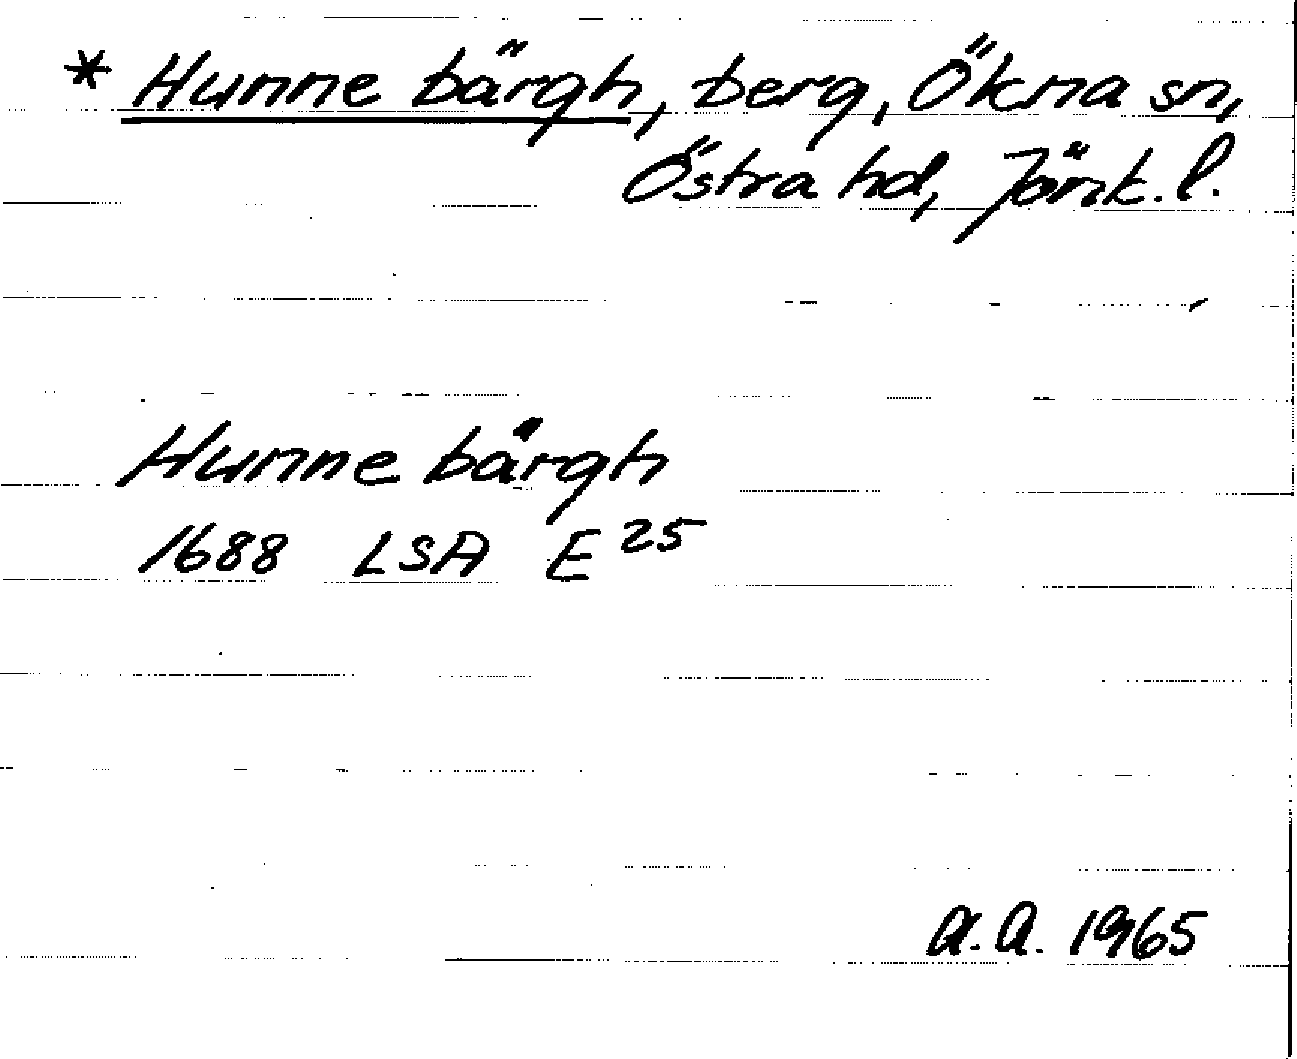 * Hunne bärgh, berg, Ökna sn,
Östra hd, Jönk. l.
Hunne bärgh
1688 LSA E 25
a.a. 1965